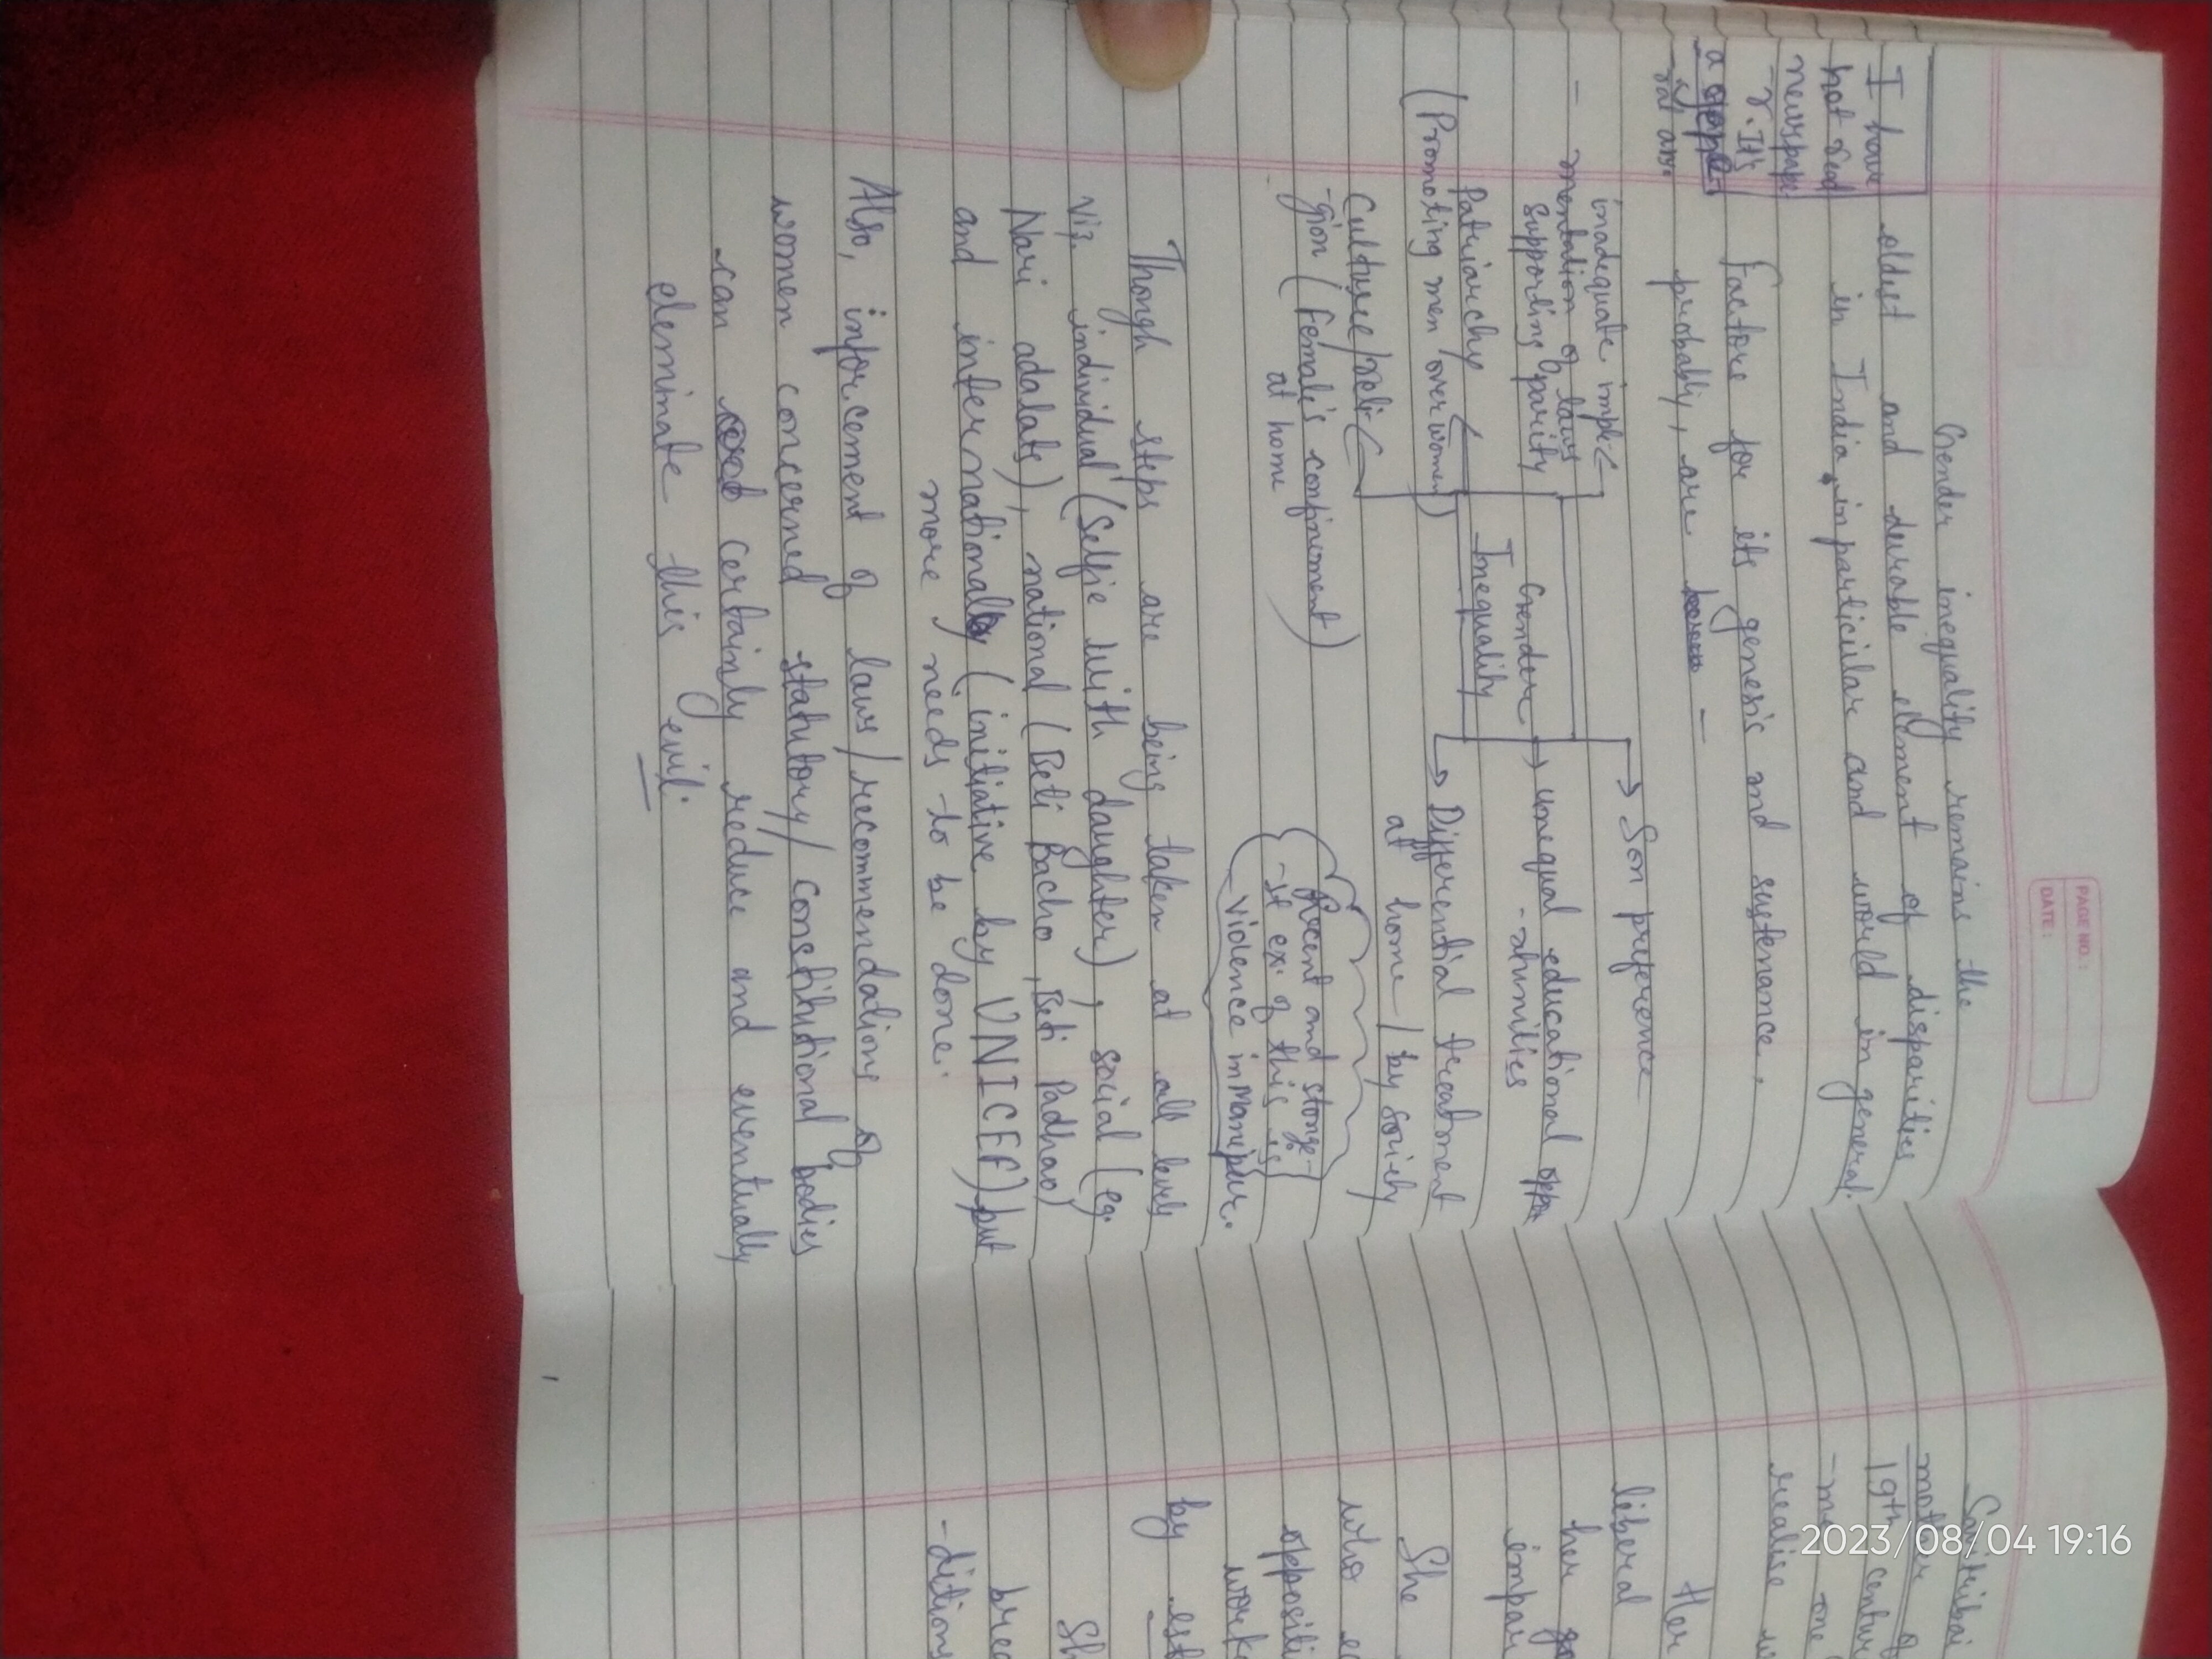 PAGE NO.:
DATE:
Gender inequality remains the
oldest and durable element of disparities
in India, in particular and world in general.
Factors for its genesis and sustenance,
probably, are —
I have
not read
newspape
-r. It's
inadequate imple
- mentation of laws
supporting parity
Patriarchy
(Promoting men over women)
Culture/reli-
-gion (Female's confinement)
at home
Gender
Inequality
Son preference
unequal educational oppo
-rtunities
Differential treatment
at home / by society
Recent and stonge-
-st ex. of this is
violence in Manipur.
Though steps are being taken at all levels
viz. individual (Selfie with daughter), social (eg.
Nari adalats), national (Beti Bacho, Beti Padhao)
and internationally (initiative by UNICEF) but
more needs to be done.
Also, inforcement of laws/recommendations of
women concerned statutory/ constitutional bodies
can certainly reduce and eventually
eleminate this evil.
Savitribai
mother of
19th centur
-me one
realise
Her
liberal
her
impar
She
who
oppositi
work
by est
Sh
brea
-ditions
2023/08/04 19:16